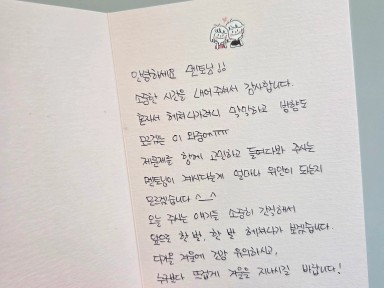 안녕하세요 멘토님!!
소중한 시간을 내어주셔서 감사합니다.
혼자서 헤쳐나가려니 막막하고 방향도
모르겠는 이 와중에ㅠㅠㅠㅠ
제 문제를 함께 고민하고 들여다봐 주시는
멘토님이 계시다는게 얼마나 위안이 되는지
모르겠습니다 ^__^
오늘 주시는 얘기들 소중히 간직해서
앞으로 한 발, 한 발 헤쳐나가 보겠습니다.
다가올 겨울에 건강 유의하시고,
누구보다 뜨겁게 겨울을 지나시길 바랍니다!